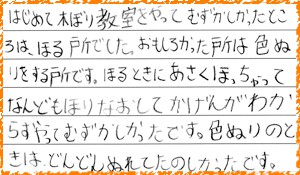 はじめて木ぼり教室をやってむずかしかったとこ
ろは、ほる戸所でした。おもしろかった戸所は色ぬ
りをする戸所です。ほるときにあさくほっちゃって
なんどもほりなおしてかげんがわか
らずやってむずかしかったです。色ぬりのと
きは、どんどんぬれてたのしかったです。